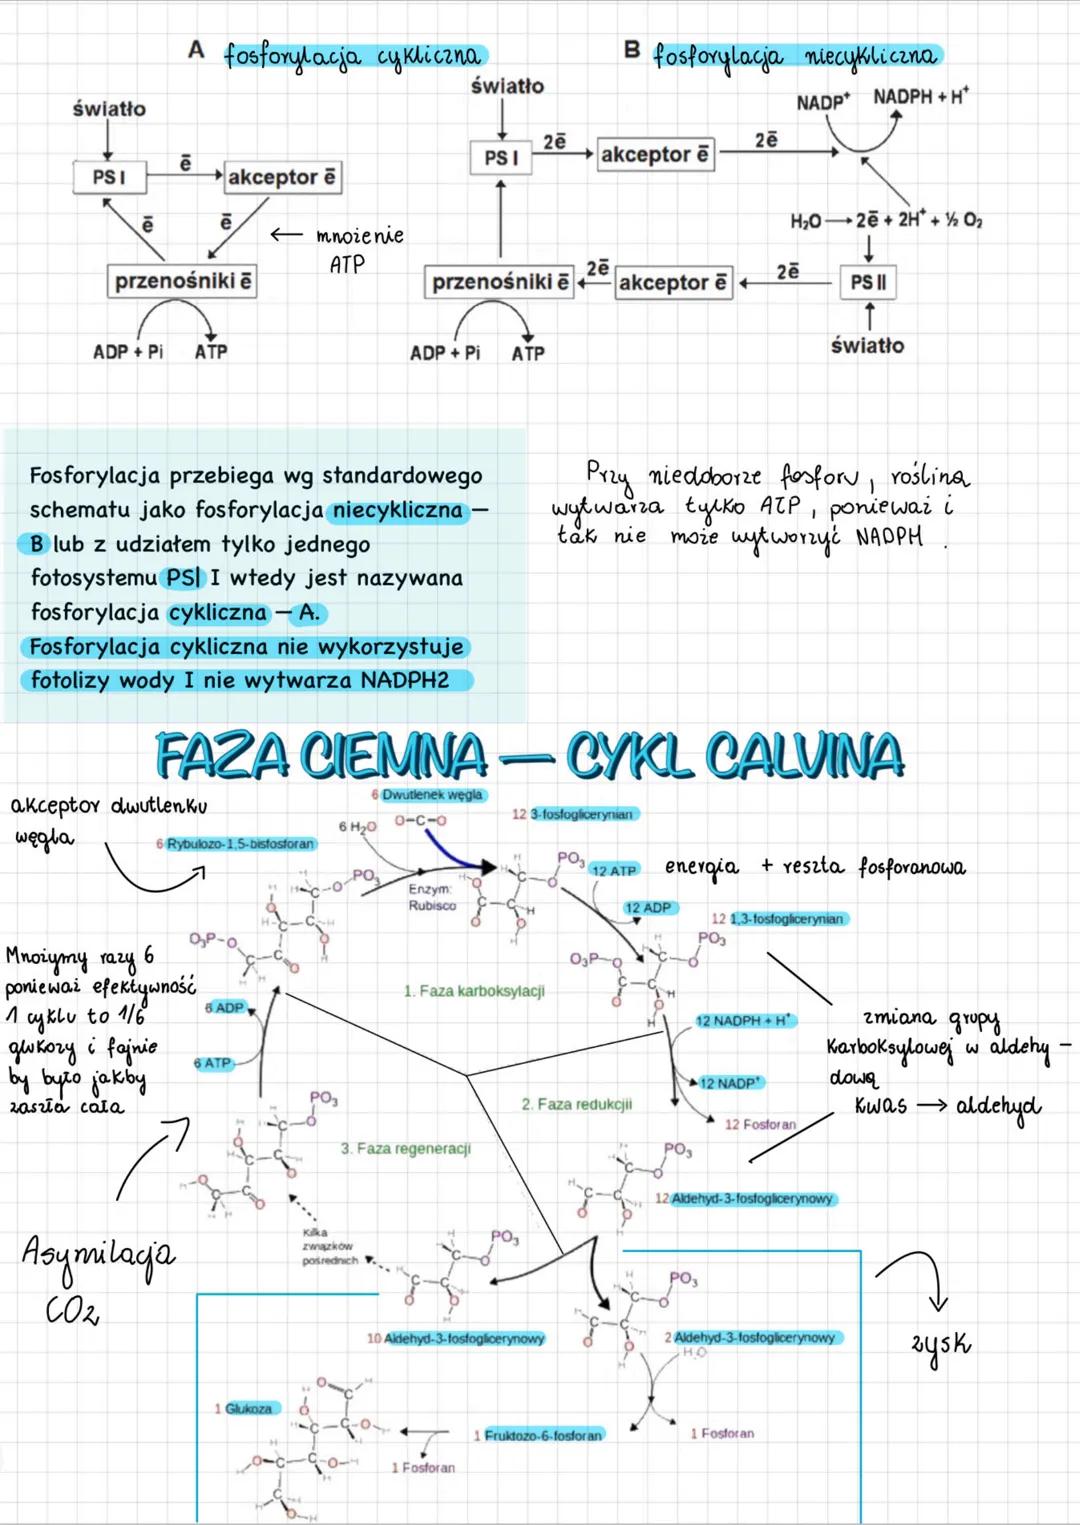 A fosforylacja cykliczna
B fosforylacja niecykliczna
światło
PS I
ē
akceptor ē
ē
ē
← mnożenie
ATP
przenośniki ē
ADP + Pi ATP
światło
PS I
2ē
akceptor ē
2ē
NADP⁺ NADPH + H⁺
H₂O → 2ē + 2H⁺ + ½ O₂
przenośniki ē
2ē
akceptor ē
2ē
PS II
światło
ADP + Pi ATP
Fosforylacja przebiega wg standardowego
schematu jako fosforylacja niecykliczna –
B lub z udziałem tylko jednego
fotosystemu PSI I wtedy jest nazywana
fosforylacja cykliczna – A.
Fosforylacja cykliczna nie wykorzystuje
fotolizy wody I nie wytwarza NADPH2
Przy niedoborze fosforu, roślina
wytwarza tylko ATP, ponieważ i
tak nie może wytworzyć NADPH.
FAZA CIEMNA – CYKL CALVINA
akceptor dwutlenku
węgla
6 Rybulozo-1,5-bisfosforan
6 H₂O
6 Dwutlenek węgla
O-C-O
12 3-fosfoglicerynian
Enzym:
Rubisco
12 ATP
energia + reszta fosforanowa
12 ADP
12 1,3-fosfoglicerynian
1. Faza karboksylacji
Mnożymy razy 6
ponieważ efektywność
1 cyklu to 1/6
glukozy i fajnie
by było jakby
zaszła cała
6 ADP
6 ATP
12 NADPH + H⁺
12 NADP⁺
12 Fosforan
zmiana grupy
karboksylowej w aldehy-
dową
kwas → aldehyd
2. Faza redukcjii
3. Faza regeneracji
12 Aldehyd-3-fosfoglicerynowy
Asymilacja
CO₂
Kilka
związków
pośrednich
10 Aldehyd-3-fosfoglicerynowy
2 Aldehyd-3-fosfoglicerynowy
H₂O
zysk
1 Glukoza
1 Fosforan
1 Fruktozo-6-fosforan
1 Fosforan